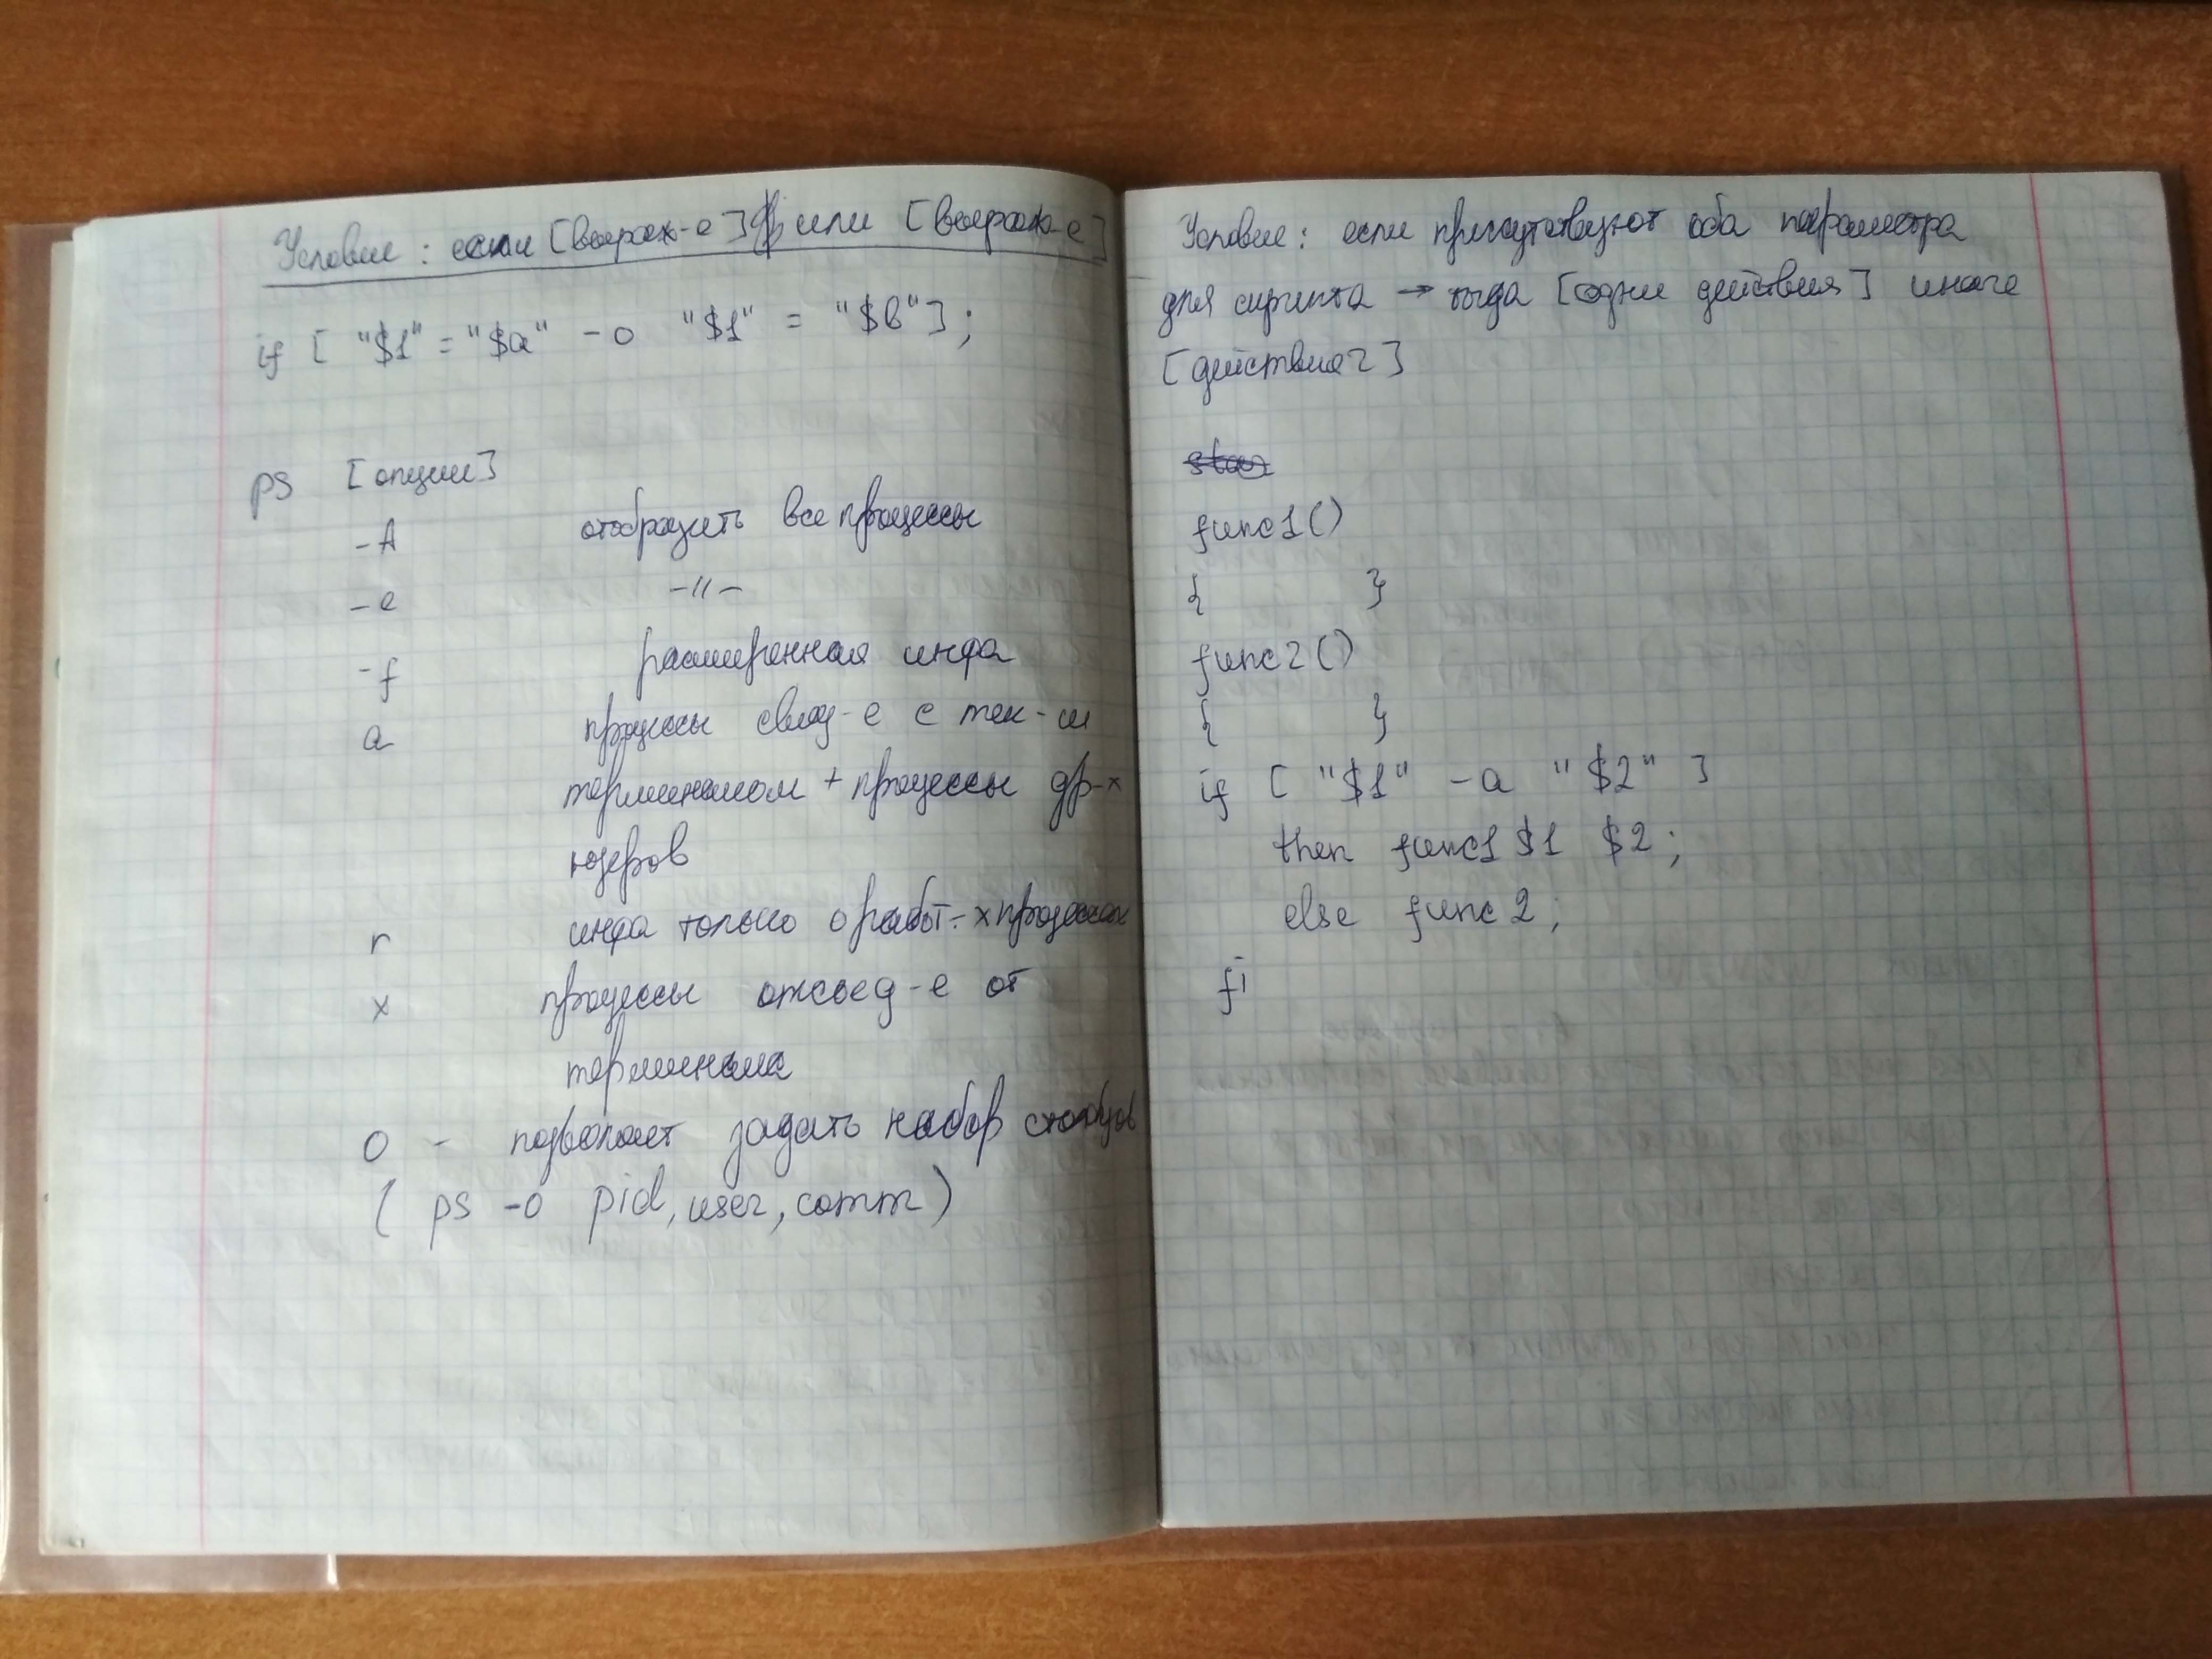 Условие : если [выраж-е] или [выраж-е]
if [ "$1" = "$a" -o "$1" = "$b" ] ;
ps [опции]
-A отобразить все процессы
-e -//-
-f расширенная инфа
a процессы связ-е с тек-м
терминалом + процессы др-х
юзеров
r инфа только о работ-х процессах
x процессы отсоед-е от
терминала
o - позволяет задать набор столбцов
( ps -o pid, user, comm )
Условие : если присутствуют оба параметра
для скрипта → тогда [одни действия] иначе
[действия2]
func1()
{ }
func2()
{ }
if [ "$1" -a "$2" ]
then func1 $1 $2 ;
else func2 ;
fi